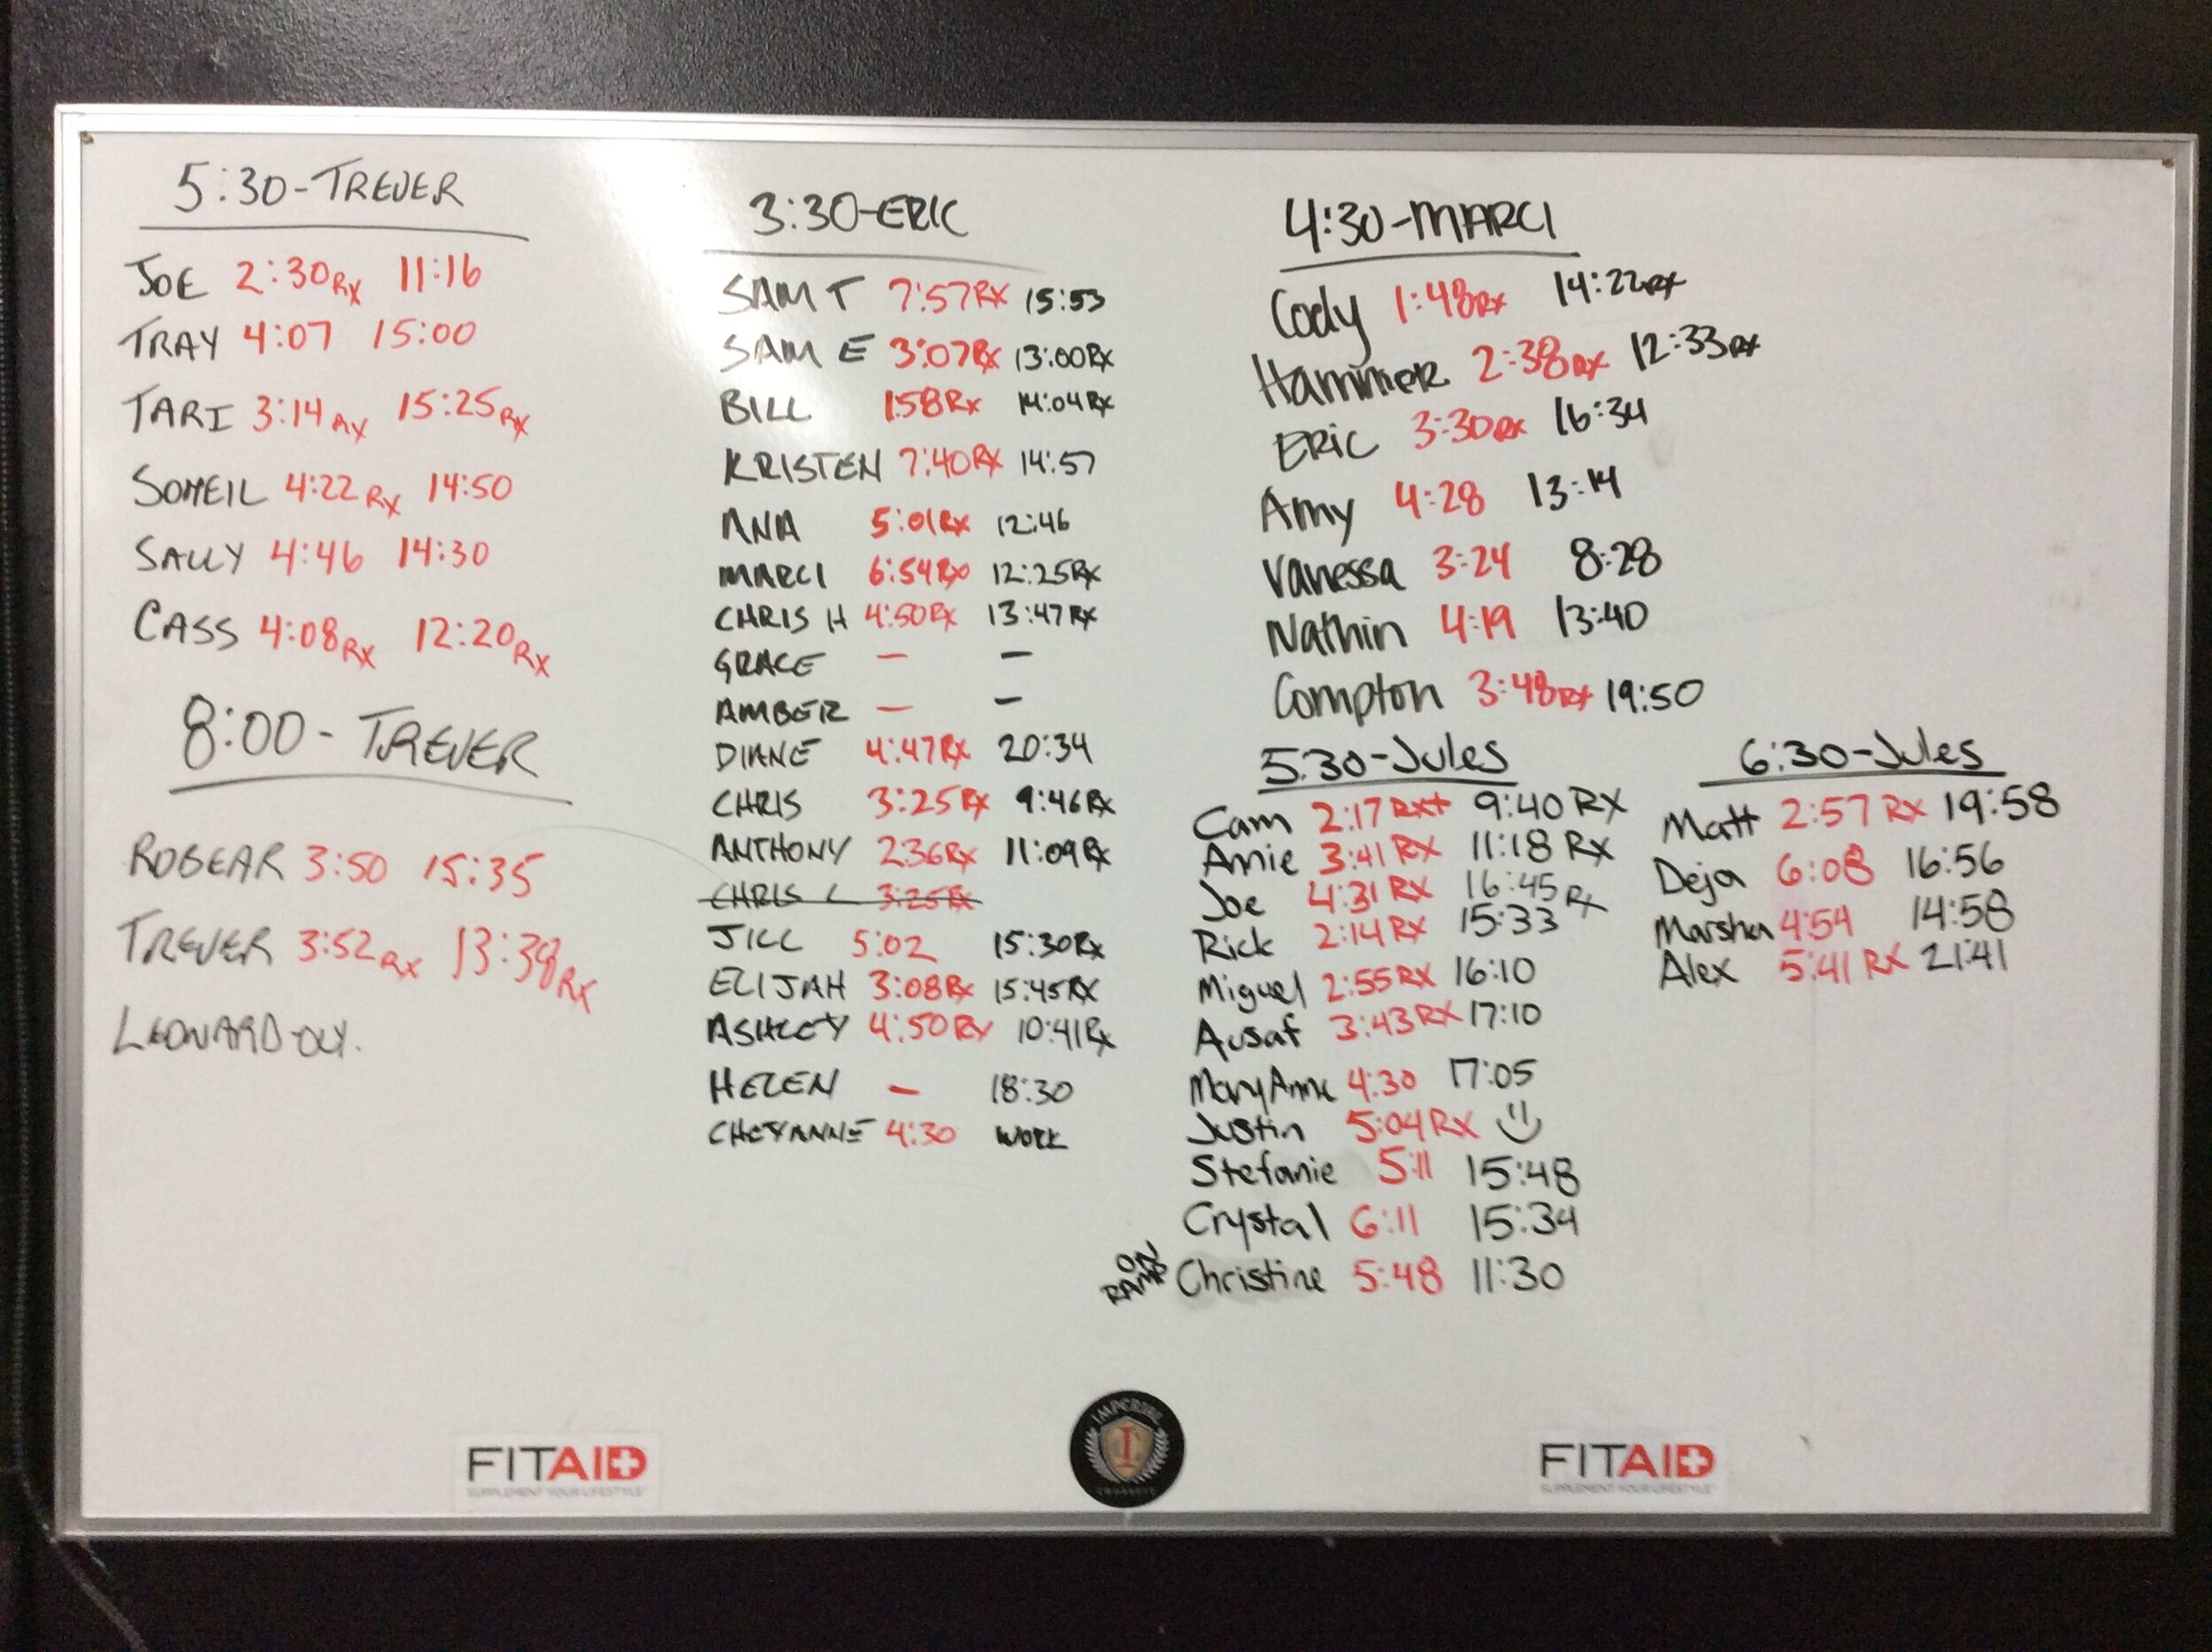 5:30-TREVER
JOE 2:30 RX 11:16
TRAY 4:07 15:00
TARI 3:14 RX 15:25 RX
SOMEIL 4:22 RX 14:50
SALLY 4:46 14:30
CASS 4:08 RX 12:20 RX
8:00-TREVER
ROBEAR 3:50 15:35
TREVER 3:52 RX 13:38 RX
LEONARD-OLY.
3:30-ERIC
SAM T 7:57 RX 15:53
SAM E 3:07 RX 13:00 RX
BILL 1:58 RX 14:04 RX
KRISTEN 7:40 RX 14:57
ANA 5:01 RX 12:46
MARCI 6:54 RX 12:25 RX
CHRIS H 4:50 RX 13:47 RX
GRACE - -
AMBER - -
DIANE 4:47 RX 20:34
CHRIS 3:25 RX 9:46 RX
ANTHONY 2:36 RX 11:09 RX
CHRIS L 3:25 RX
JILL 5:02 15:30 RX
ELIJAH 3:08 RX 15:45 RX
ASHLEY 4:50 RX 10:41 RX
HELEN - 18:30
CHEYANNE 4:30 WORK
4:30-MARCI
Cody 1:48 RX 14:22 RX
Hammer 2:38 RX 12:33 RX
ERIC 3:30 RX 16:34
Amy 4:28 13:14
Vanessa 3:24 8:28
Nathin 4:19 13:40
Compton 3:48 RX 19:50
5:30-Jules
Cam 2:17 RX+ 9:40 RX
Amie 3:41 RX 11:18 RX
Joe 4:31 RX 16:45 RX
Rick 2:14 RX 15:33
Miguel 2:55 RX 16:10
Ausaf 3:43 RX 17:10
MaryAnne 4:30 17:05
Justin 5:04 RX
Stefanie 5:11 15:48
Crystal 6:11 15:34
ON RAMP Christine 5:48 11:30
6:30-Jules
Matt 2:57 RX 19:58
Deja 6:08 16:56
Marsha 4:54 14:58
Alex 5:41 RX 21:41
FITAID
SUPPLEMENT YOUR LIFESTYLE
IMPERIAL
I
CROSSFIT
FITAID
SUPPLEMENT YOUR LIFESTYLE